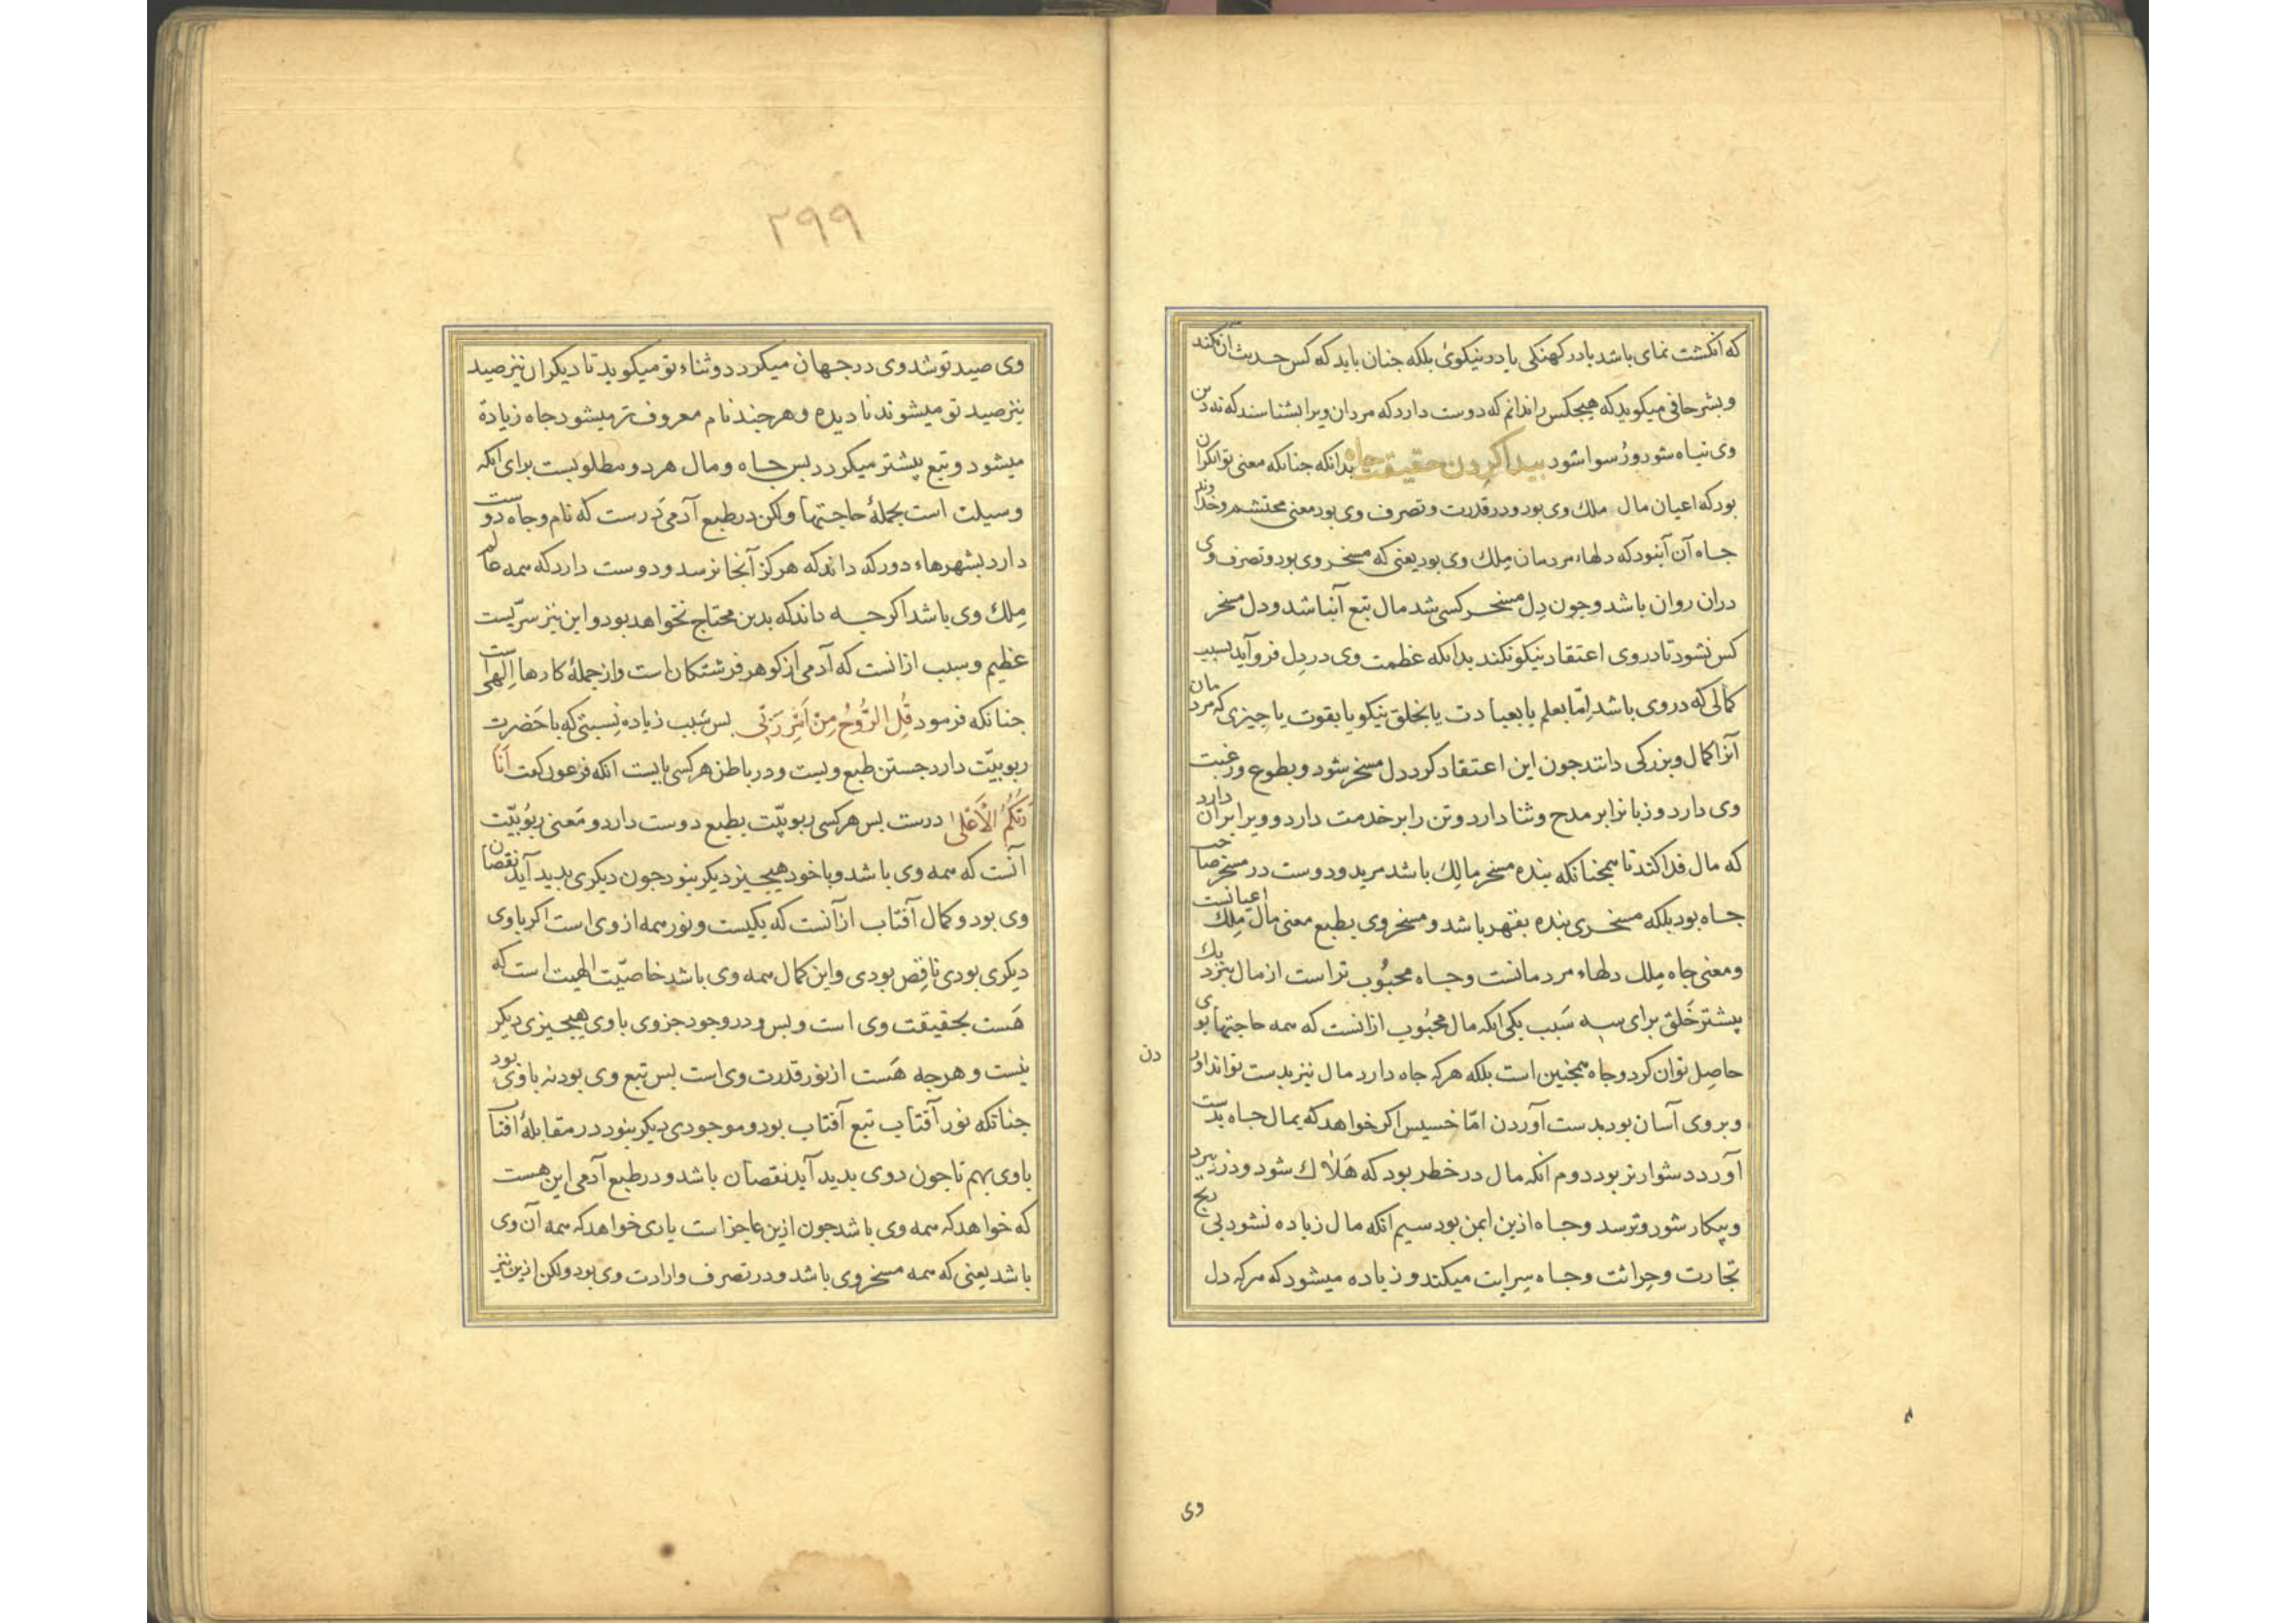 که انکشت نمای باشد یا در کهنکی یا در نیکوی بلکه جنان باید که کس حدیث آن نکند
و بشر حافی میکوید که هیجکس را ندانم که دوست دارد که مردمان ویرا بشناسند که نه دین
وی تباه شود و رسوا شود بیدا کردن حقیقت جاه بدانکه جنانکه معنی توانکران
بود که اعیان مال ملك وی بود و در قدرت و تصرف وی بود معنی محتشم و خداوند
جاه آن آنبود که دلهاء مردمان مِلك وی بود یعنی که مسخر وی بود و تصرف وی
دران روان باشد و جون دِل مسخر کسی شد مال تبع آنباشد و دل مسخر
کس نشود تا در وی اعتقاد نیکو نکند بدانکه عظمت وی در دِل فرو آید بسبب
کمالی که در وی باشد اِمّا بعلم یا بعبادت یا بخلق نیکو یا بقوت یا جیزی که مردمان
آنرا کمال و بزرکی دانند جون این اعتقاد کرد دل مسخر شود و بطوع و رغبت
وی دارد و زبانرا بر مدح و ثنا دارد و تن را بر خدمت دارد و ویرا بران دارد
که مال فدا کند تا همجنانکه بنده مسخر مالِك باشد مرید و دوست در مسخر صاحب
جاه بود بلکه مسخری بنده بقهر باشد و مسخر وی بطبع معنی مال مِلك اعیانست
و معنی جاه مِلك دلهاء مردمانست و جاه محبُوب تر است از مال بنزدیك
بیشتر خَلق برای سه سَبب یکی انکه مال محبُوب ازانست که همه حاجتها بوی
حاصِل توان کرد و جاه همجنین است بلکه هرکه جاه دارد مال نیز بدست تواند اور
دن
و بر وی آسان بود بدست آوردن امّا خسیس اکر خواهد که بمال جاه بدست
آورد دشوارتر بود دوم انکه مال در خطر بود که هَلاك شود و دزد ببرد
و بیکار شود و ترسد و جاه ازین ایمن بود سیم انکه مال زیاده نشود بی رنج
تجارت و حِراثت و جاه سِرایت میکند و زیاده میشود که هرکه دل
وی
۲۹۹
وی صید تو شد وی در جهان میکردد و ثناء تو میکوید تا دیکران نیز صید
نیز صید تو میشوند نادیده و هرجند نام معروف تر میشود جاه زیادة
میشود و تبع بیشتر میکردد بس جاه و مال هر دو مطلوبست برای انکه
وسیلت است بجملهٔ حاجتها ولکن در طبع آدمی دَرست که نام و جاه دوست
دارد بشهرهاء دور که داند که هرکز آنجا نرسد و دوست دارد که همه عالم
مِلك وی باشد اکرجه داند که بدین محتاج نخواهد بود و این نیز سرّیست
عظیم و سبب ازانست که آدمی از کوهر فرشتکان است و از جملهٔ کارها اِلهی است
جنانکه فرمود قُلِ الرُّوحُ مِنْ اَمْرِ رَبّی بس سَبب زیاده نِسبتی که با حَضرت
ربوبیّت دارد جستن طبع ویست و در باطن هر کسی بایست انکه فرعون کفت اَنَا
رَبُّکُمُ الْاَعْلی درست بس هر کسی ربوبیّت بطبع دوست دارد و مَعنی ربوُبیّت
آنست که همه وی باشد و با خود هیجیز دیکر نبود جون دیکری بدید آید نقصان
وی بود و کمال آفتاب ازآنست که یکیست و نور همه از وی است اکر با وی
دیکری بودی ناقِص بودی و این کمال همه وی باشد خاصیّت الهیت است که
هَست بحقیقت وی است و بس و در وجود جز وی با وی هیجیزی دیکر
نیست و هرجه هَست از نور قدرت وی است بس تبع وی بود نه با وی بود
جنانکه نور آفتاب تبع آفتاب بود و موجودی دیکر نبود در مقابلهٔ افتاب
با وی بهم تا جون دوی بدید آید نقصان باشد و در طبع آدمی این هست
که خواهد که همه وی باشد جون ازین عاجز است باری خواهد که همه آن وی
باشد یعنی که همه مسخر وی باشد و در تصرف و ارادت وی بود ولکن ازین نیز